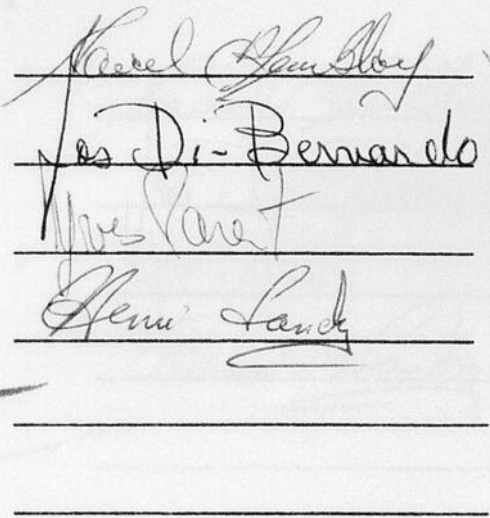 Marcel
Jos Di-Bernardo
Yves Parent
Henri Landy